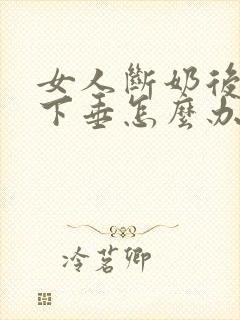 女人斷奶後
下垂怎麼办
冷茗卿